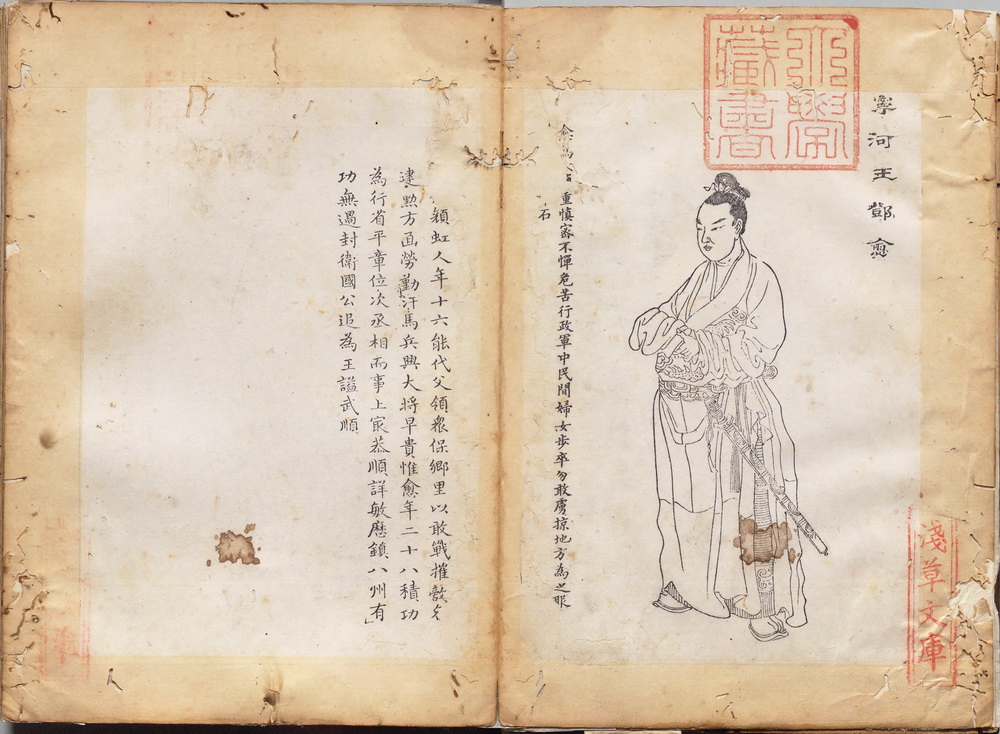 寧河王鄧愈
大學藏書
淺草文庫
愈為人重慎密不憚危苦行政軍中民間婦女步卒勿敢虜掠地方為之眼
石
虹人年十六能代父領衆保鄉里以敢戰摧敵名
逮勲方面勞勤汗馬兵興大將早貴惟愈年二十八積功
為行省平章位次丞相而事上㝡恭順詳敏歷鎮八州有
功無過封衛國公追為王謚武順